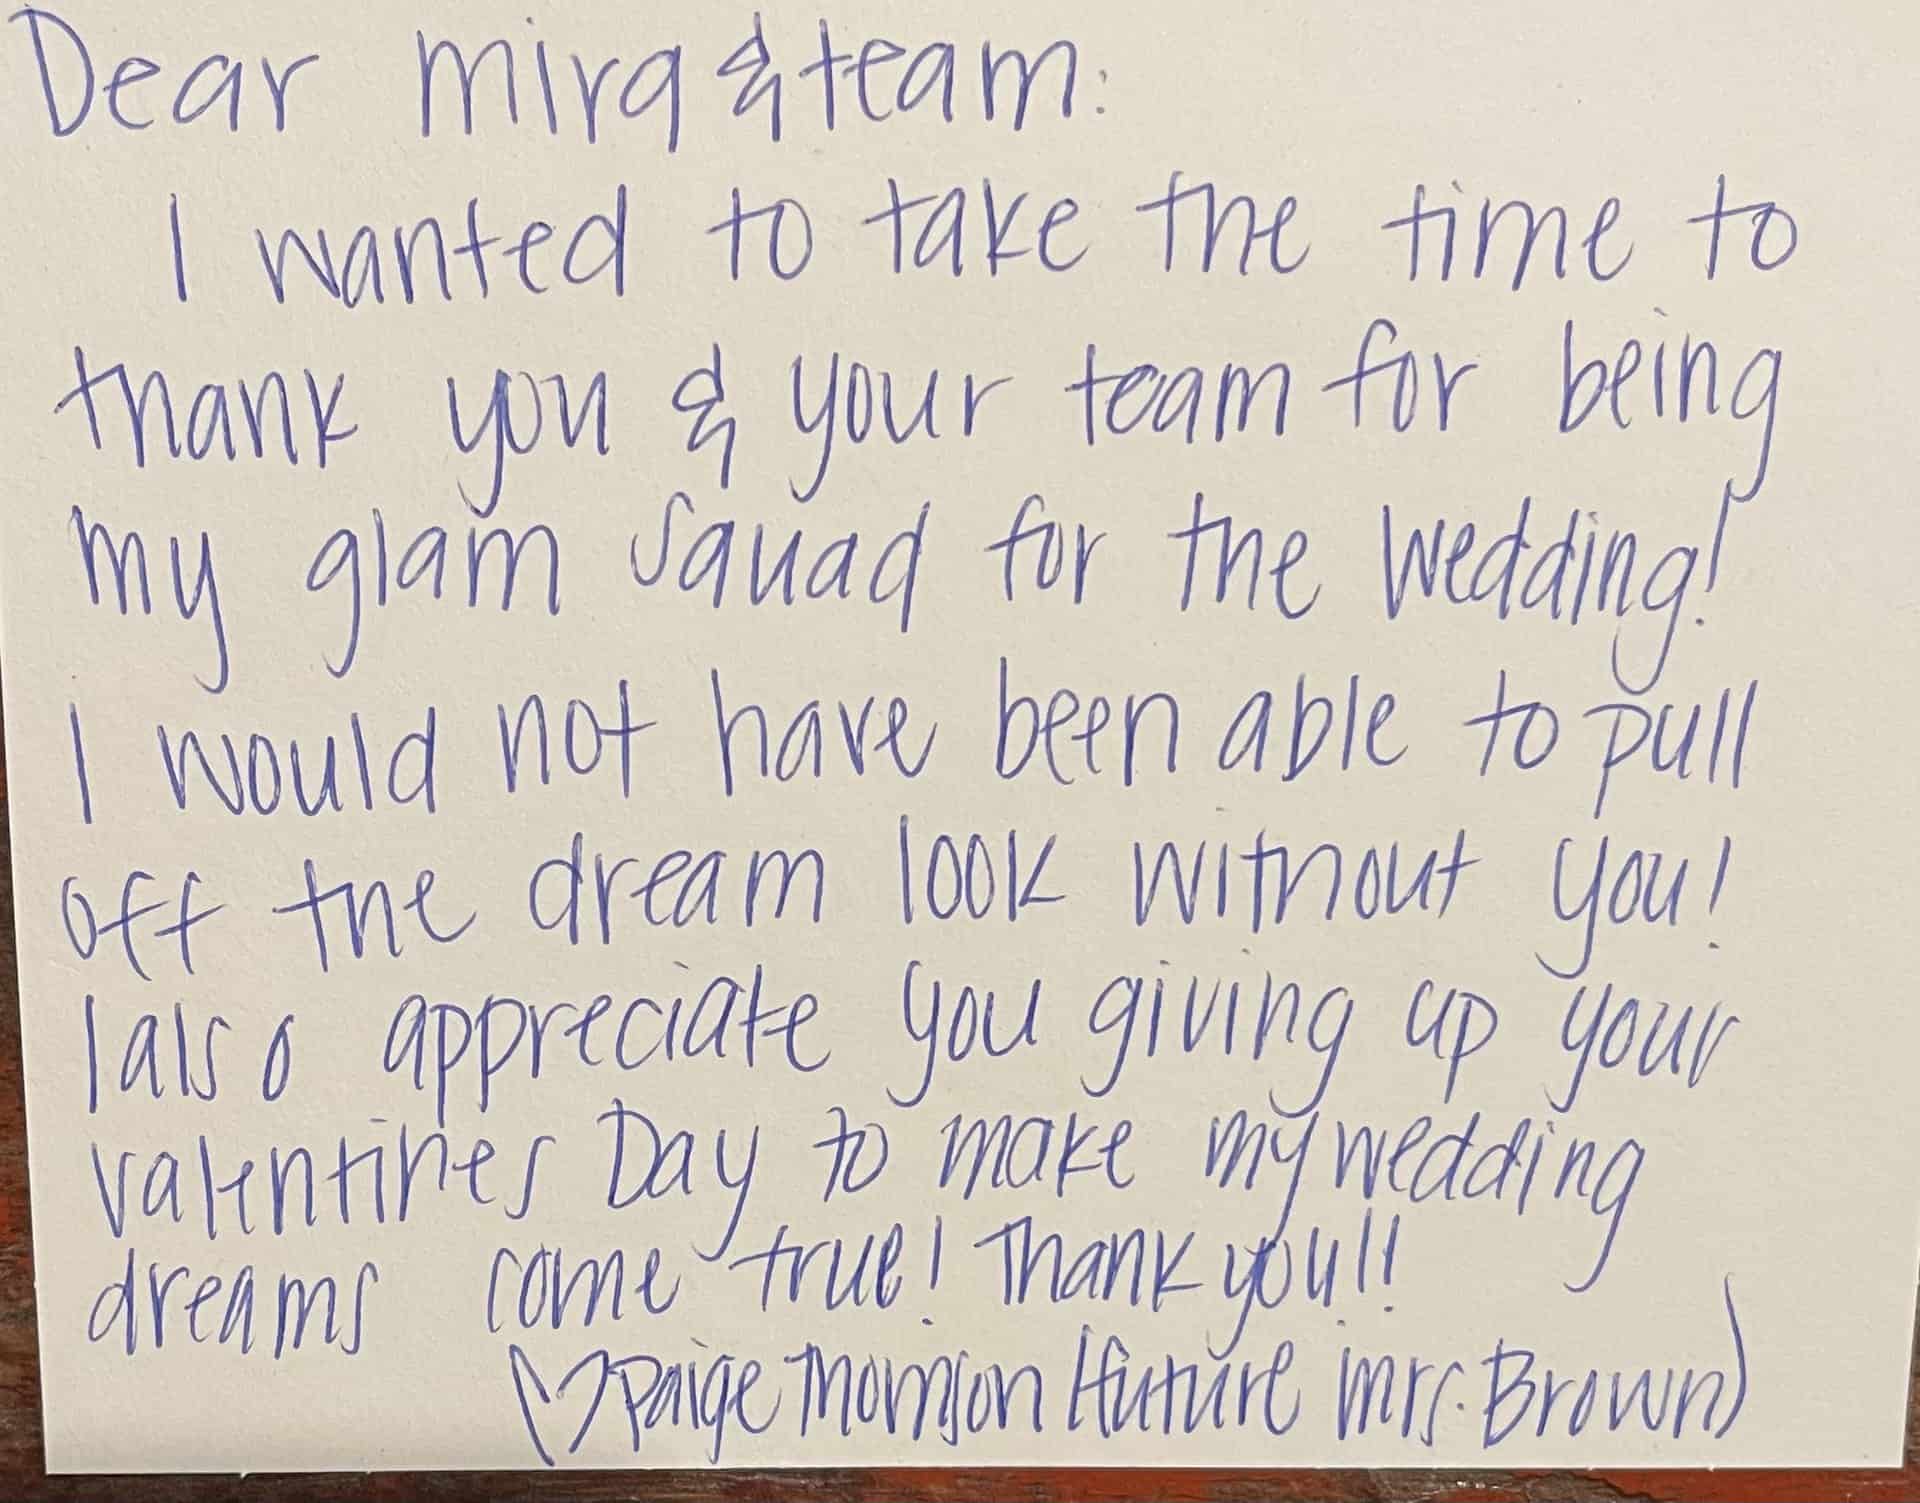 Dear Mira & team:
I wanted to take the time to
thank you & your team for being
my glam squad for the wedding!
I would not have been able to pull
off the dream look without you!
I also appreciate you giving up your
Valentines Day to make my wedding
dreams come true! Thank you!!
♡ Paige Thomson (future Mrs. Brown)